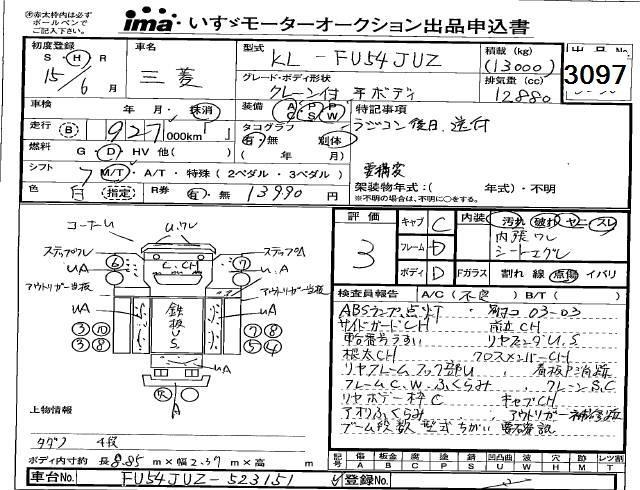 ※赤太枠内は必ず
ボールペンで
ご記入下さい。
ima いすゞモーターオークション出品申込書
初度登録
S・H・R
15/6月
車名
三菱
型式
KL-FU54JUZ
積載 (kg)
(13000)
グレード・ボディ形状
クレーン付 平ボディ
排気量 (cc)
12880
出品No
3097
車検 年 月・抹消
装備 A/C P/S P/W
特記事項
走行 B 927 000km
タコグラフ
有・無 別体
( 年 月)
ラジコン後日送付
燃料 G・D・HV 他( )
シフト 7 M/T・A/T・特殊(2ペダル・3ペダル)
要構変
架装物年式:( 年式)・不明
※不明の場合は、不明に○をする。
色 白 指定 R券 有・無 13990 円
評価
3
キャブ C
フレーム D
ボディ D
内装 汚れ 破れ ヤニ スレ
内張ワレ
シートエグレ
Fガラス 割れ 線 点傷 イバリ
検査員報告 A/C(不良) B/T( )
コーナーU U,ワレ
ステップワレ ステップU
C,CH
6 7
UA U.A
アウトリガー当板 アウトリガー当板
鉄板 U S
UA UA
3 10 7 8
3 8 5 4
UA
A
ABSランプ点灯
サイドガードCH
車台番号うすい リヤフェンダU,S
根太CH クロスメンバーCH
リヤフレームフック部U
フレームC,W,ふくらみ クレーンS,C
リヤボデー枠C キャブCH
アオリふくらみ アウトリガー補修跡
ブーム段数型式ちがい 要確認
上物情報
タダノ 4段
ボディ内寸約 長8.85 m×幅2.37 m×高 m
記号 傷 A 凹 B 板金 K 腐 C 塗 P 錆 S 凹凸曲 U 凹曲 W 穴 H 跡 M レ ツ 割 T
車台No. FU54JUZ-523151
登録No.